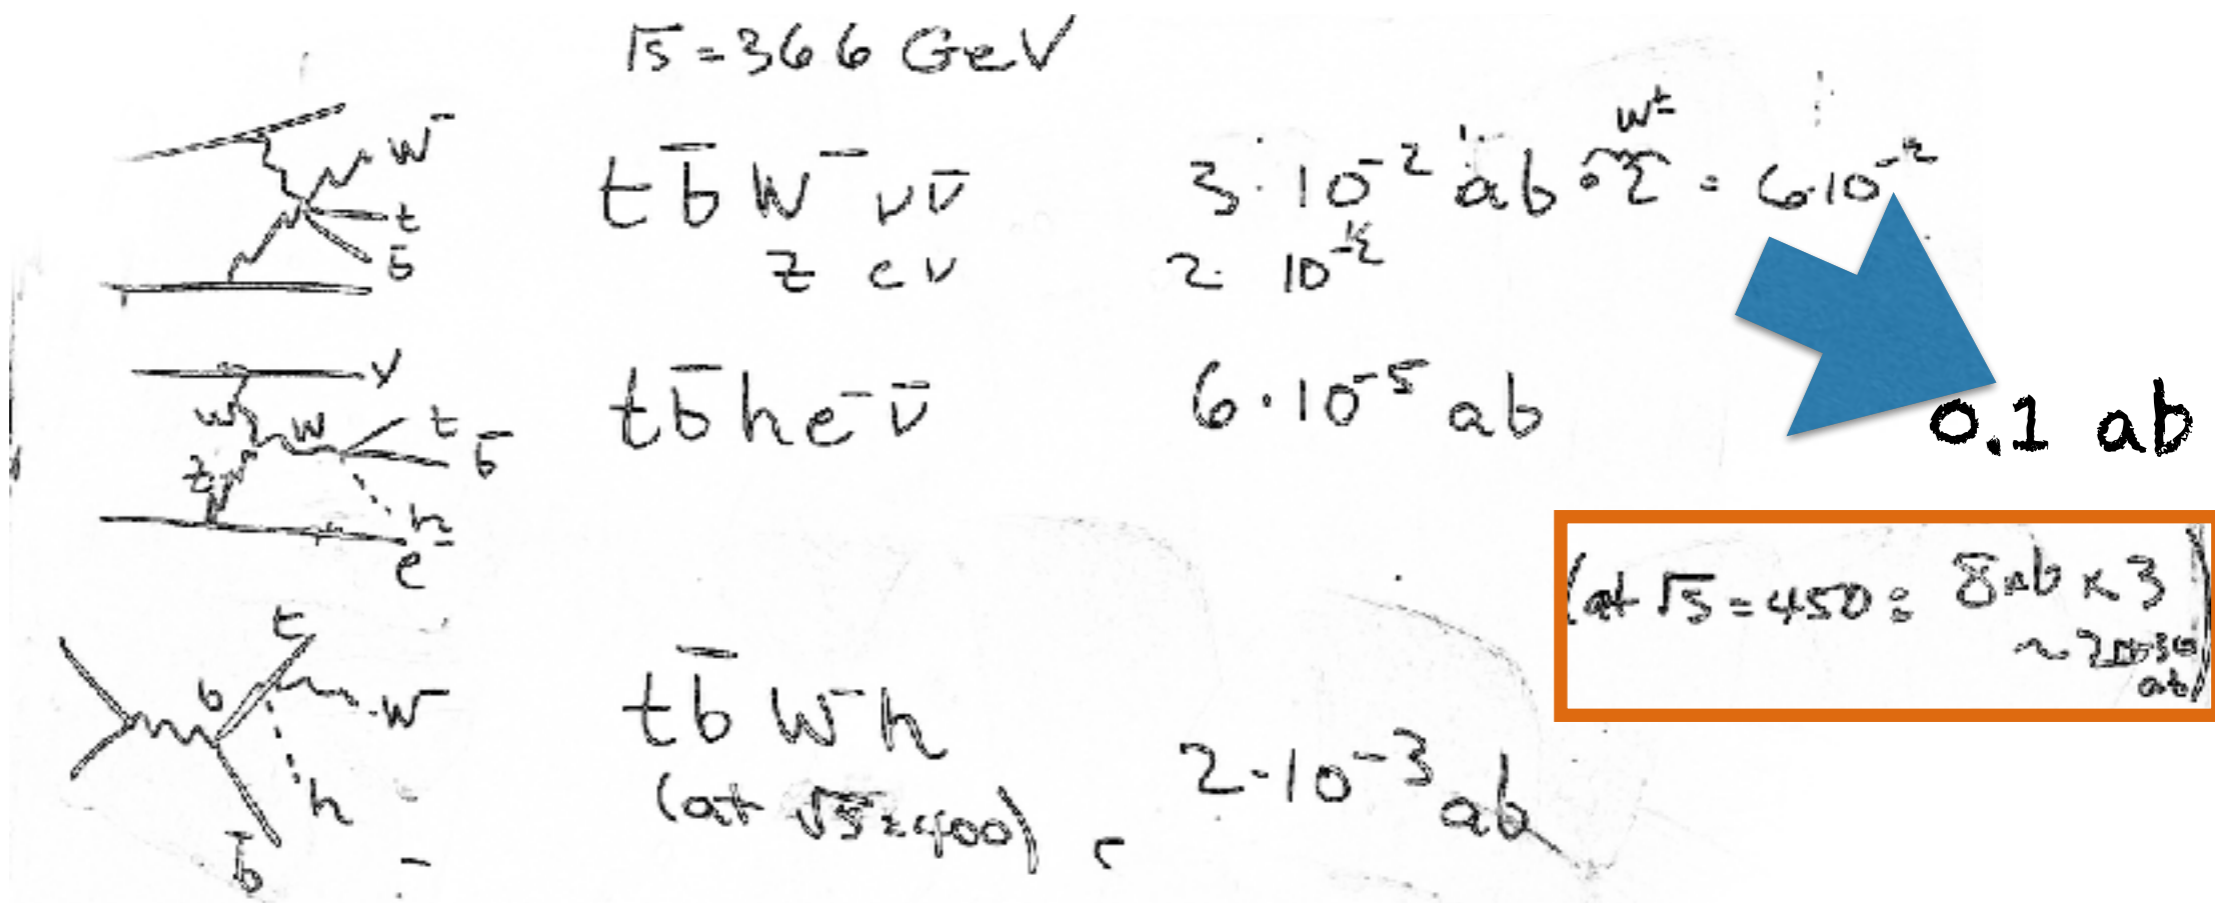 √s = 366 GeV
W⁻
t
b̄
t b̄ W⁻ ν ν̄
3·10⁻² ab · 2 = 6·10⁻²
W±
z e ν
2·10⁻²
ν
W
W
t
b̄
z
h
e⁻
t b̄ h e⁻ ν̄
6·10⁻⁵ ab
0.1 ab
(at √s = 450 = 8ab × 3
~ 20-30
ab)
t
b
W⁻
h
b̄
t b̄ W⁻ h
(at √s=400)
2·10⁻³ ab